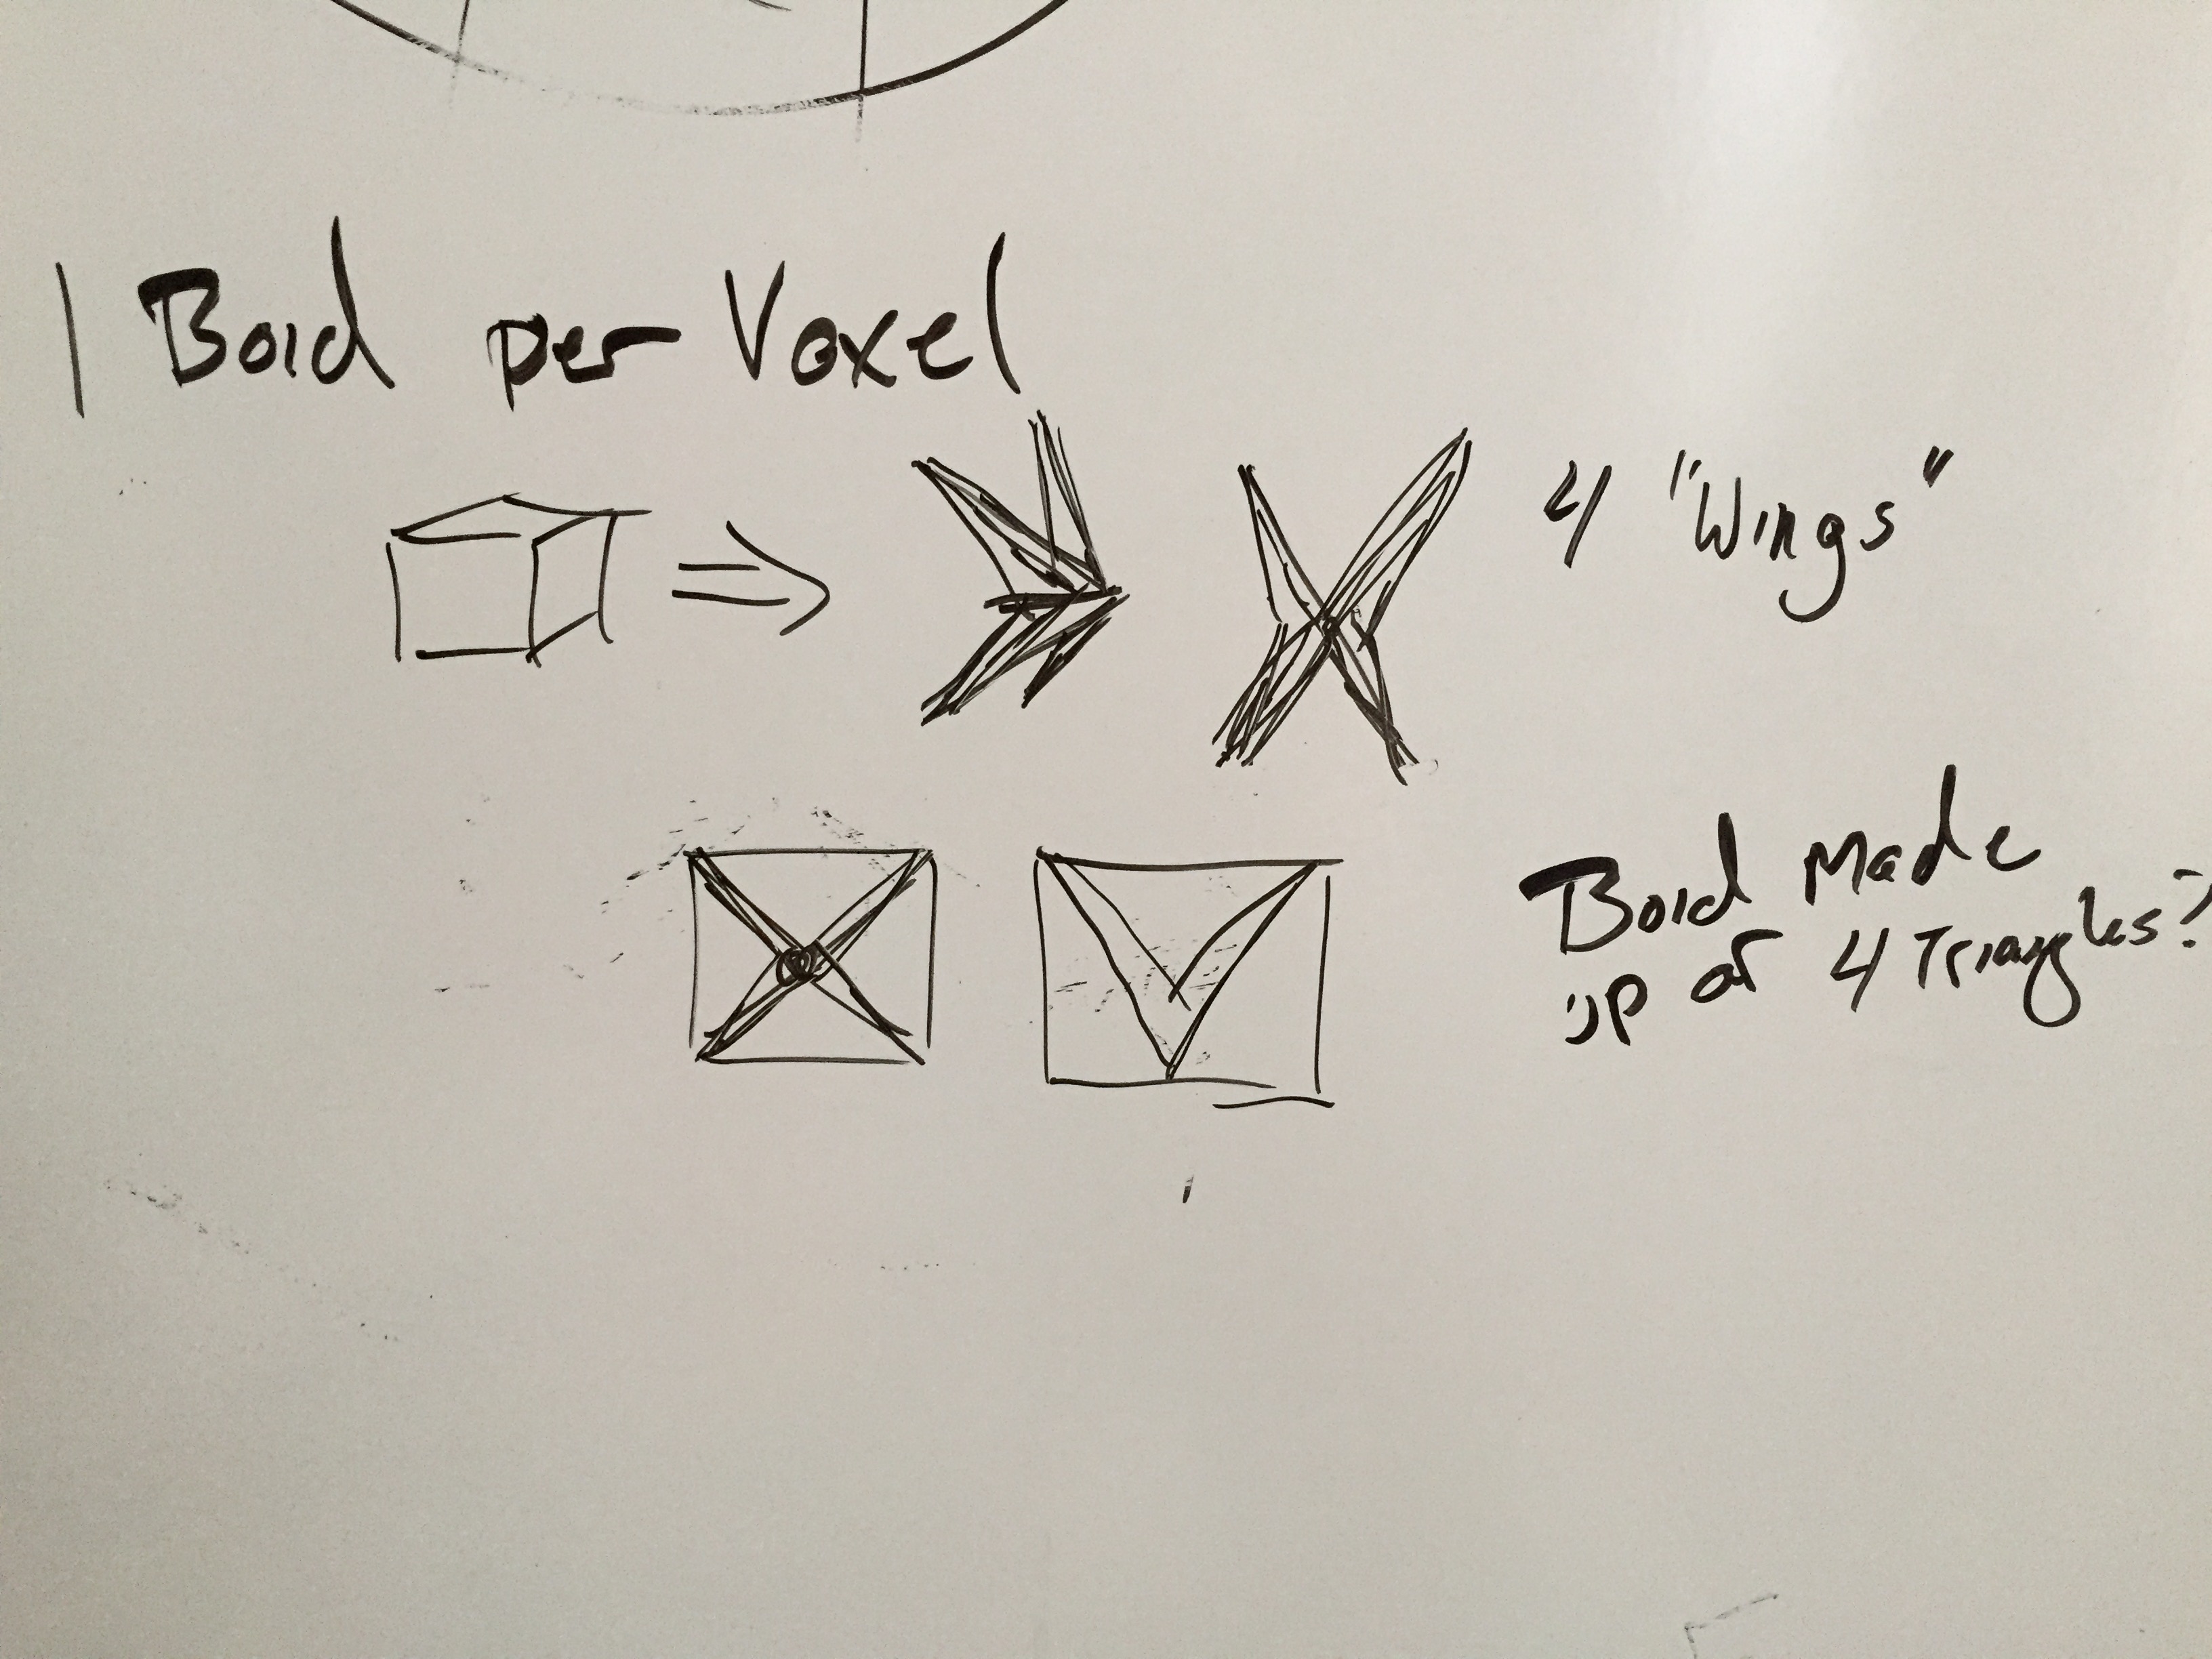 1 Boid per Voxel
4 "Wings"
Boid Made
up of 4 Triangles?